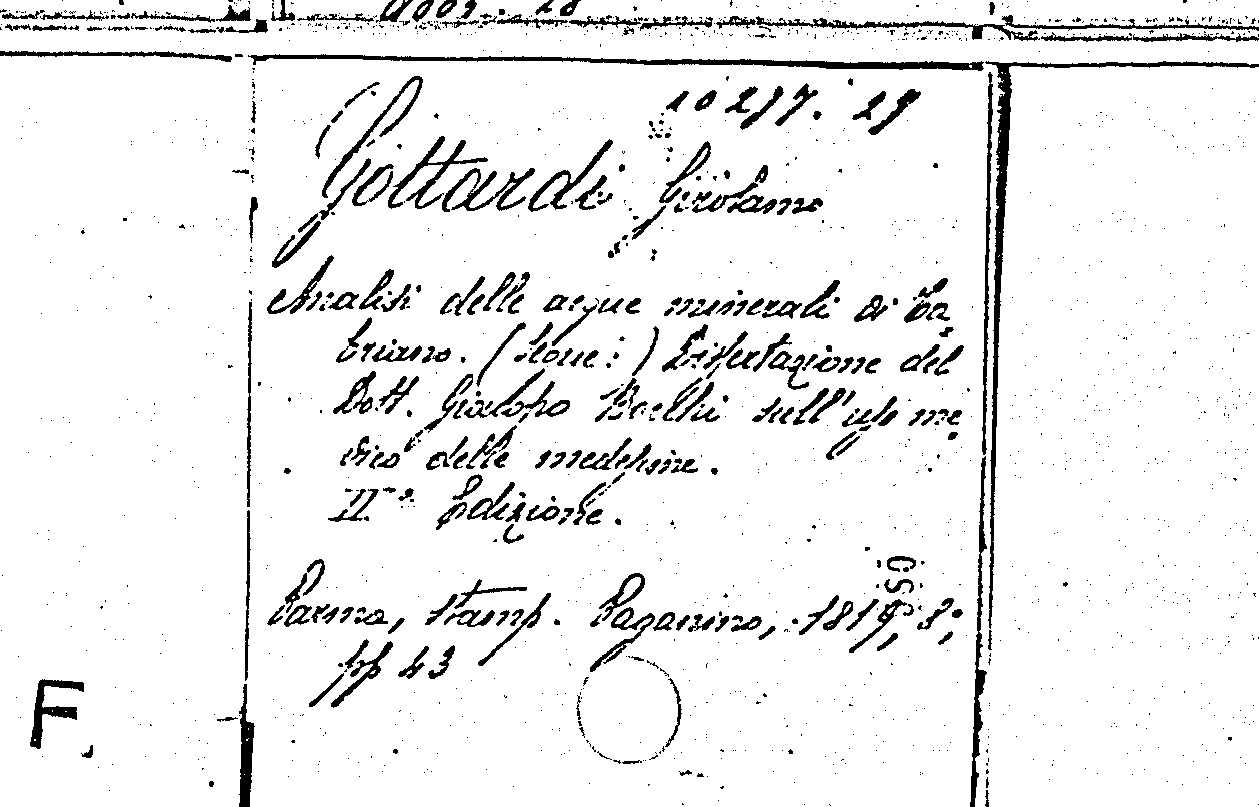 10277. 29
Gottardi Girolamo
Analisi delle acque minerali di Ta-
briano. (Segue:) Dissertazione del
Dott. Giacopo Boelhi sull'uso me-
dico delle medesime.
II.ª Edizione.
Parma, stamp. Paganino, 1819, 8°,
pp 43
F.